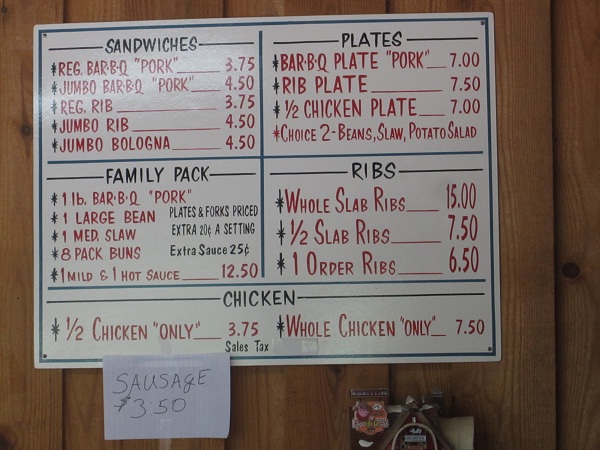 SANDWICHES
REG. BAR-B-Q "PORK" 3.75
JUMBO BAR-B-Q "PORK" 4.50
REG. RIB 3.75
JUMBO RIB 4.50
JUMBO BOLOGNA 4.50
PLATES
BAR-B-Q PLATE "PORK" 7.00
RIB PLATE 7.50
1/2 CHICKEN PLATE 7.00
CHOICE 2-BEANS, SLAW, POTATO SALAD
FAMILY PACK
1 lb. BAR-B-Q "PORK"
1 LARGE BEAN
1 MED. SLAW
8 PACK BUNS
1 MILD & 1 HOT SAUCE 12.50
PLATES & FORKS PRICED
EXTRA 20¢ A SETTING
Extra Sauce 25¢
RIBS
WHOLE SLAB RIBS 15.00
1/2 SLAB RIBS 7.50
1 ORDER RIBS 6.50
CHICKEN
1/2 CHICKEN "ONLY" 3.75
WHOLE CHICKEN "ONLY" 7.50
Sales Tax
SAUSAGE
$3.50